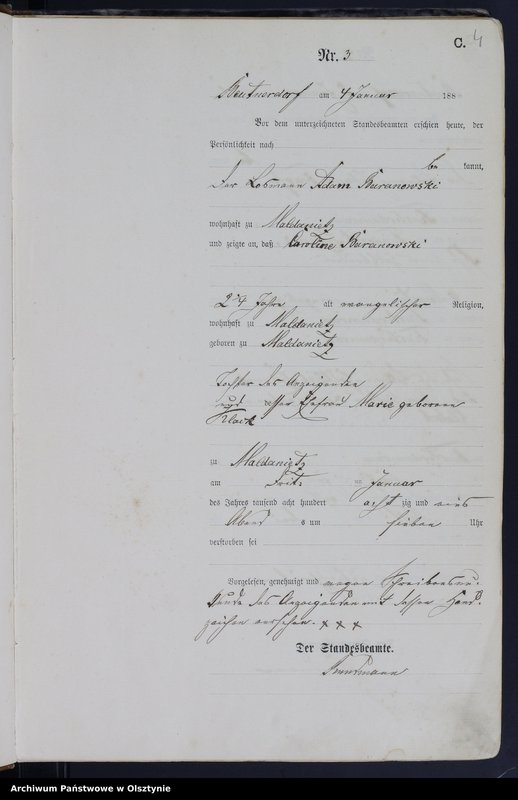 C. 4
Nr. 3
Beutnerdorf am 4 Januar 188
Vor dem unterzeichneten Standesbeamten erschien heute, der
Persönlichkeit nach
be kannt,
Der Losmann Adam Baranowski
wohnhaft zu Maldanietz
und zeigte an, daß Caroline Baranowski
alt evangelischer Religion,
wohnhaft zu Maldanietz
geboren zu Maldanietz
Tochter des Anzeigenden
und dessen Ehefrau Marie geborenen
zu Maldanietz
am Januar
des Jahres tausend acht hundert acht zig und eins
Abend s um sieben Uhr
verstorben sei
Vorgelesen, genehmigt und wegen Schreibensun-
kunde des Anzeigenden mit dessen Hand-
zeichen versehen. xxx
Der Standesbeamte.
Archiwum Państwowe w Olsztynie